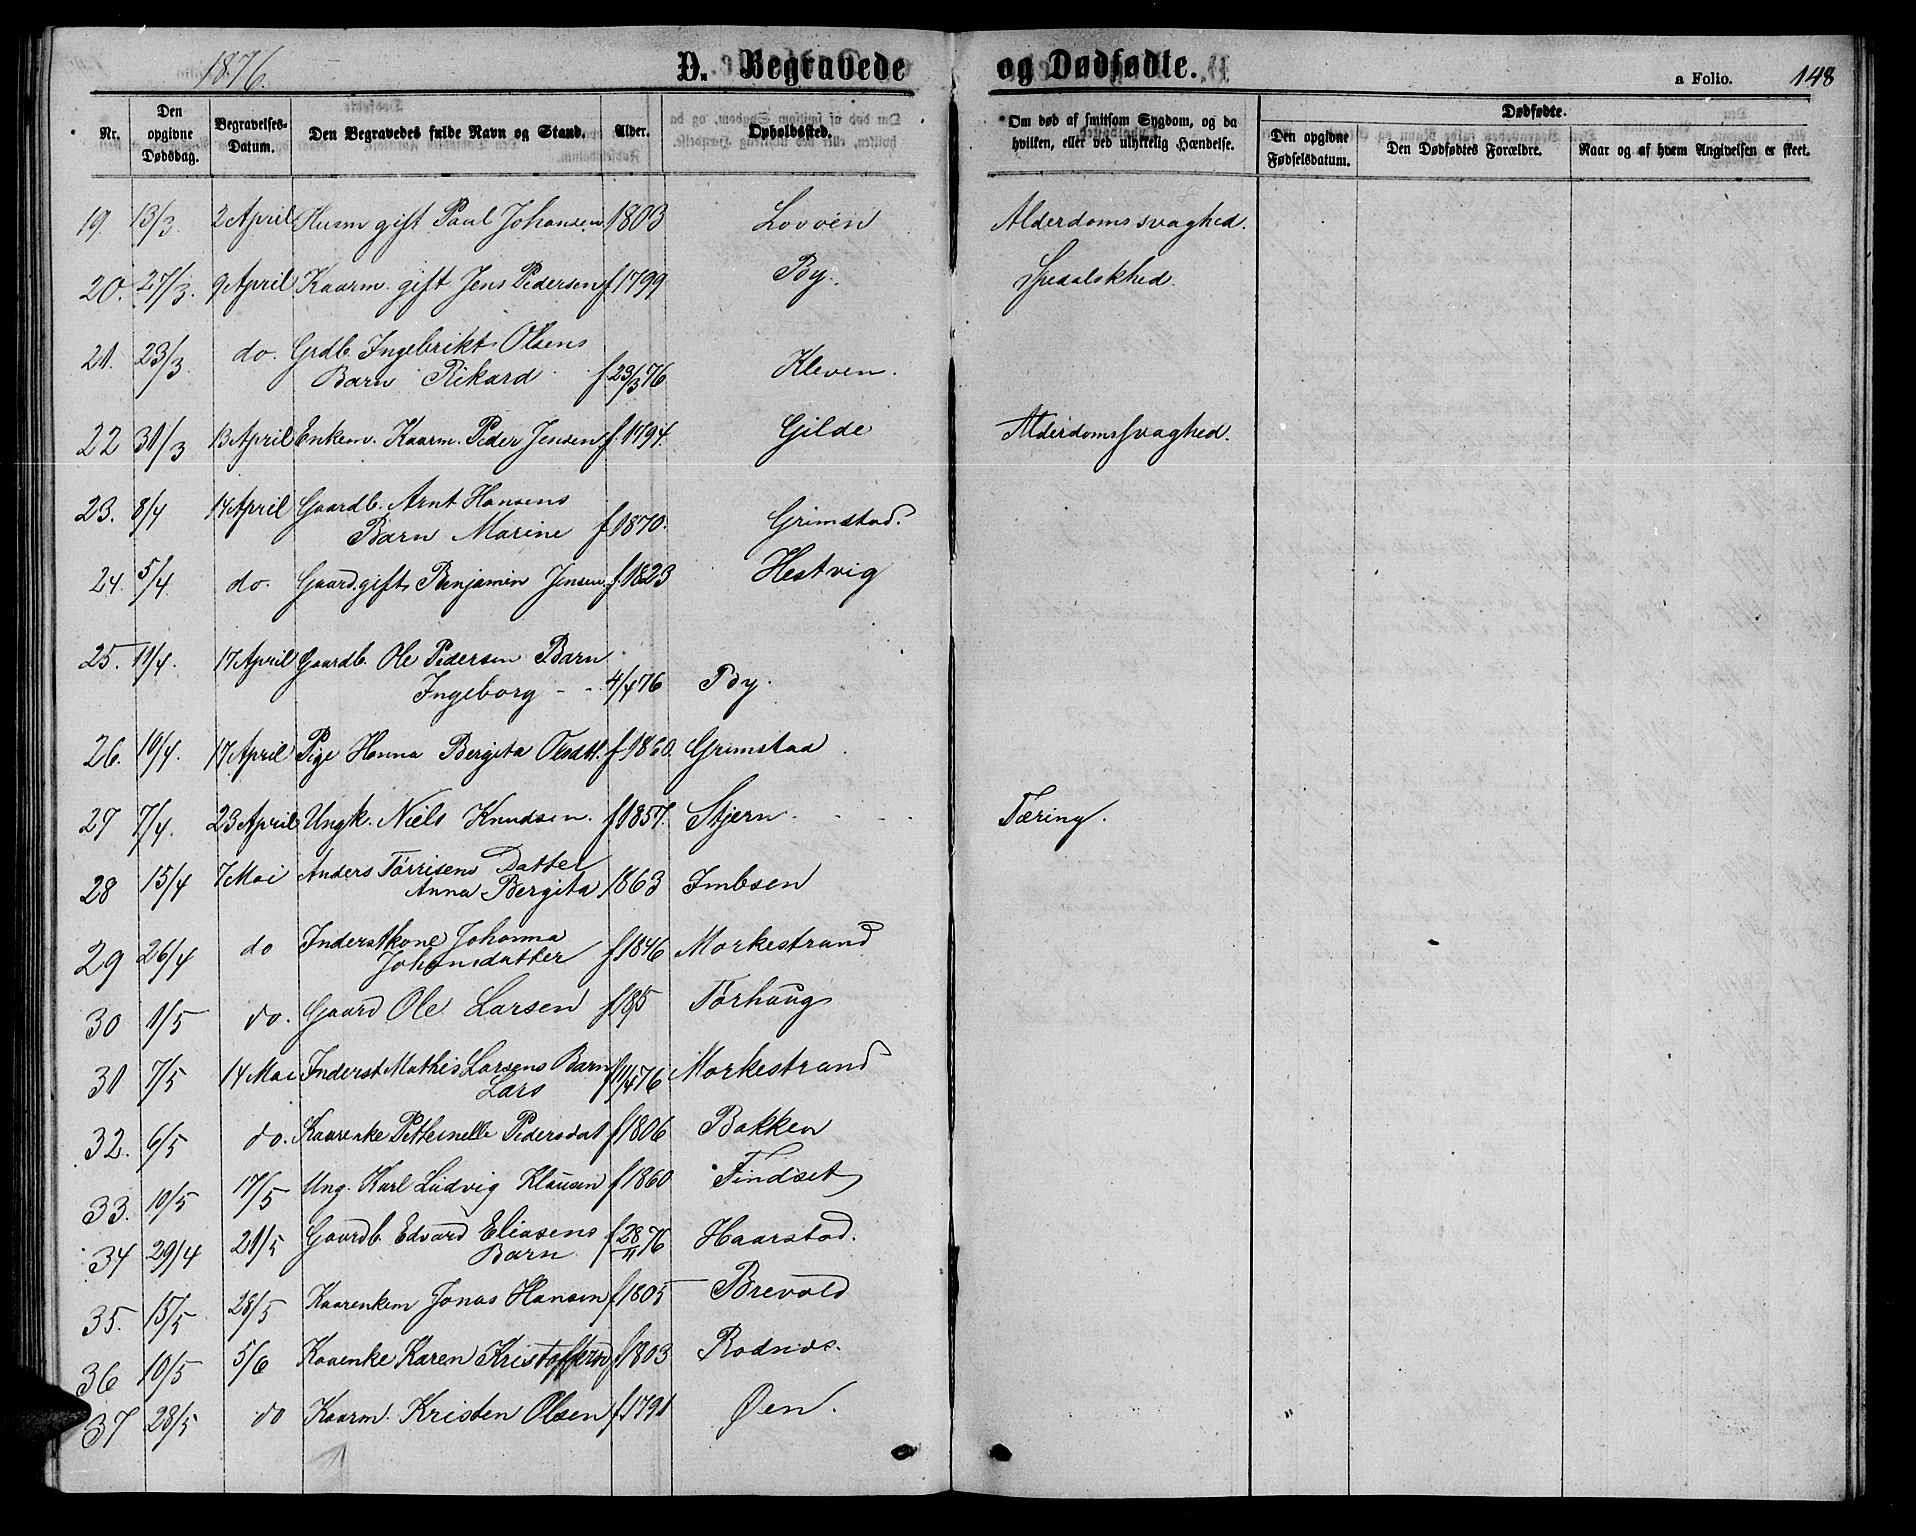 1876.
D. Begravede og Dødfødte.
a Folio. 148
Nr. Den opgivne Dødsdag. Begravelses-Datum. Den Begravedes fulde Navn og Stand. Alder. Opholdssted. Om død af smitsom Sygdom, og da hvilken, eller ved ulykkelig Hændelse. Dødfødte. Den opgivne Fødselsdatum. Den Dødfødtes Forældre. Naar og af hvem Angivelsen er skeet.
19. 13/3. 2 April Husm gift Paul Johansen 1803 Lovøen Alderdomssvaghed.
20. 27/3. 9 April Kaarm. gift Jens Pedersen f 1799 By. Spedalskhed.
21. 23/3 do. Grdb. Ingebrikt Olsens
Barn Rikard f. 23/3 76 Kleven.
22 31/3 13 April Enkem. Kaarm. Peder Jensen f. 1794. Gilde Alderdomssvaghed.
23. 8/4 14 April Gaardb. Arnt Hansens
Barn Marine f 1870. Grimstad.
24. 5/4 do. Gaard. gift Benjamin Jensen f. 1823 Hestvig
25. 11/4. 17 April Gaardb. Ole Pedersen Barn
Ingeborg - - 4/4 76 By.
26. 10/4. 17 April Pige Hanna Bergita Olsdtt. f 1860. Grimstad
27 7/4. 23 April Ungk. Niels Knudsen. f 1857. Stjern Tæring.
28 15/4 7 Mai Anders Tørrisens Datter
Anna Bergita 1863 Imbsen
29 26/4 do Inderstkone Johanna
Johansdatter f 1846 Morkestrand
30 1/5 do. Gaard Ole Larsen Tørhaug
31 7/5 14 Mai Inderst Mathis Larsens Barn
Lars f 11/4 76 Morkestrand
32. 6/5 do. Kaarenke Petternelle Pedersdat f 1806 Bakken
33. 10/5 17/5 Ung. Karl Ludvig Klausen f 1860 Findset
34 29/4 21/5 Gaardb Edvard Eliasens
Barn f 28/11 76 Haarstad.
35. 15/5 28/5 Kaarenkem Jonas Hansen f 1805 Brevold
36 10/5 5/6 Kaaenke Karen f 1803
37 28/5 do Kaarm. Kristen Olsen f. 1791 Øen.